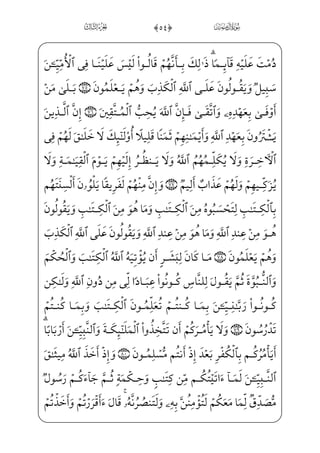 سورة آل عمران ﴿٥٤﴾ الجزء الثالث
دُمْتَ عَلَيْهِ قَآئِمًا ۗ ذَٰلِكَ بِأَنَّهُمْ قَالُوا۟ لَيْسَ عَلَيْنَا فِى ٱلْأُمِّيِّـۧنَ
سَبِيلٌ وَيَقُولُونَ عَلَى ٱللَّهِ ٱلْكَذِبَ وَهُمْ يَعْلَمُونَ ٧٥ بَلَىٰ مَنْ
أَوْفَىٰ بِعَهْدِهِۦ وَٱتَّقَىٰ فَإِنَّ ٱللَّهَ يُحِبُّ ٱلْمُتَّقِينَ ٧٦ إِنَّ ٱلَّذِينَ
يَشْتَرُونَ بِعَهْدِ ٱللَّهِ وَأَيْمَـٰنِهِمْ ثَمَنًا قَلِيلًا أُو۟لَـٰٓئِكَ لَا خَلَـٰقَ لَهُمْ فِى
ٱلْـَٔاخِرَةِ وَلَا يُكَلِّمُهُمُ ٱللَّهُ وَلَا يَنظُرُ إِلَيْهِمْ يَوْمَ ٱلْقِيَـٰمَةِ وَلَا
يُزَكِّيهِمْ وَلَهُمْ عَذَابٌ أَلِيمٌ ٧٧ وَإِنَّ مِنْهُمْ لَفَرِيقًا يَلْوُۥنَ أَلْسِنَتَهُم
بِٱلْكِتَـٰبِ لِتَحْسَبُوهُ مِنَ ٱلْكِتَـٰبِ وَمَا هُوَ مِنَ ٱلْكِتَـٰبِ وَيَقُولُونَ
هُوَ مِنْ عِندِ ٱللَّهِ وَمَا هُوَ مِنْ عِندِ ٱللَّهِ وَيَقُولُونَ عَلَى ٱللَّهِ ٱلْكَذِبَ
وَهُمْ يَعْلَمُونَ ٧٨ مَا كَانَ لِبَشَرٍ أَن يُؤْتِيَهُ ٱللَّهُ ٱلْكِتَـٰبَ وَٱلْحُكْمَ
وَٱلنُّبُوَّةَ ثُمَّ يَقُولَ لِلنَّاسِ كُونُوا۟ عِبَادًا لِّى مِن دُونِ ٱللَّهِ وَلَـٰكِن
كُونُوا۟ رَبَّـٰنِيِّـۧنَ بِمَا كُنتُمْ تُعَلِّمُونَ ٱلْكِتَـٰبَ وَبِمَا كُنتُمْ
تَدْرُسُونَ ٧٩ وَلَا يَأْمُرَكُمْ أَن تَتَّخِذُوا۟ ٱلْمَلَـٰٓئِكَةَ وَٱلنَّبِيِّـۧنَ أَرْبَابًا ۗ
أَيَأْمُرُكُم بِٱلْكُفْرِ بَعْدَ إِذْ أَنتُم مُّسْلِمُونَ ٨٠ وَإِذْ أَخَذَ ٱللَّهُ مِيثَـٰقَ
ٱلنَّبِيِّـۧنَ لَمَآ ءَاتَيْتُكُم مِّن كِتَـٰبٍ وَحِكْمَةٍ ثُمَّ جَآءَكُمْ رَسُولٌ
مُّصَدِّقٌ لِّمَا مَعَكُمْ لَتُؤْمِنُنَّ بِهِۦ وَلَتَنصُرُنَّهُۥ ۚ قَالَ ءَأَقْرَرْتُمْ وَأَخَذْتُمْ